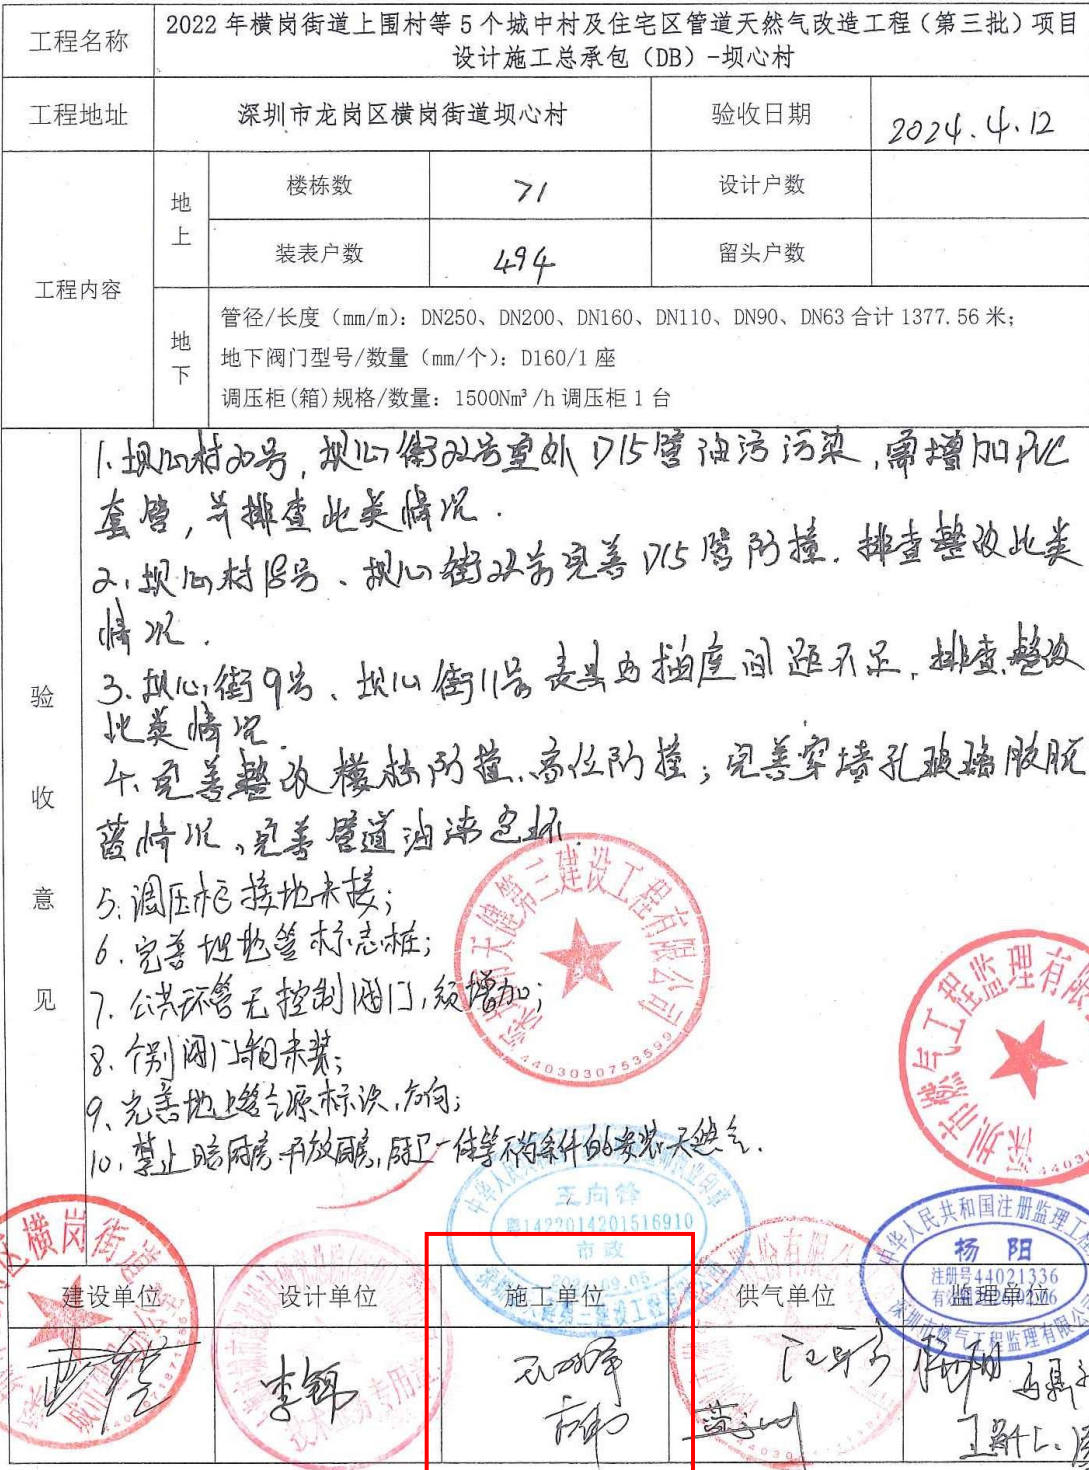 工程名称
2022年横岗街道上围村等5个城中村及住宅区管道天然气改造工程（第三批）项目
设计施工总承包（DB）-坝心村
工程地址 深圳市龙岗区横岗街道坝心村 验收日期 2024.4.12
工程内容
地上
楼栋数 71 设计户数
装表户数 494 留头户数
地下
管径/长度（mm/m）：DN250、DN200、DN160、DN110、DN90、DN63合计1377.56米；
地下阀门型号/数量（mm/个）：D160/1座
调压柜(箱)规格/数量：1500Nm³/h调压柜1台
验收意见
1.坝心村20号，坝心街22号室外D15管油污污染，需增加PVC
套管，并排查此类情况.
2.坝心村18号、坝心街22号完善D15管防撞.排查整改此类
情况.
3.坝心街9号、坝心街11号表具与插座间距不足，排查整改
此类情况.
4.完善整改楼栋防撞.高位防撞；完善穿墙孔玻璃胶脱
落情况，完善管道油漆
5.调压柜接地未接；
6.完善埋地管标志桩；
7.公共环管无控制阀门，须增加；
8.个别阀门箱未装；
9.完善地上管气源标识，方向；
10.禁止暗厨房 开放厨房，厨卫一体等不符条件的安装天然气.
深圳市天健第三建设工程有限公司
4403030753599
深圳市燃气工程监理有限
44030
王向锋
粤1422014201516910
市政
2024.09.05
中华人民共和国注册监理工程
杨阳
注册号44021336
深圳市燃气工程监理有限公
区横岗街道
建设单位 设计单位 施工单位 供气单位 监理单位
李锦
杨阳